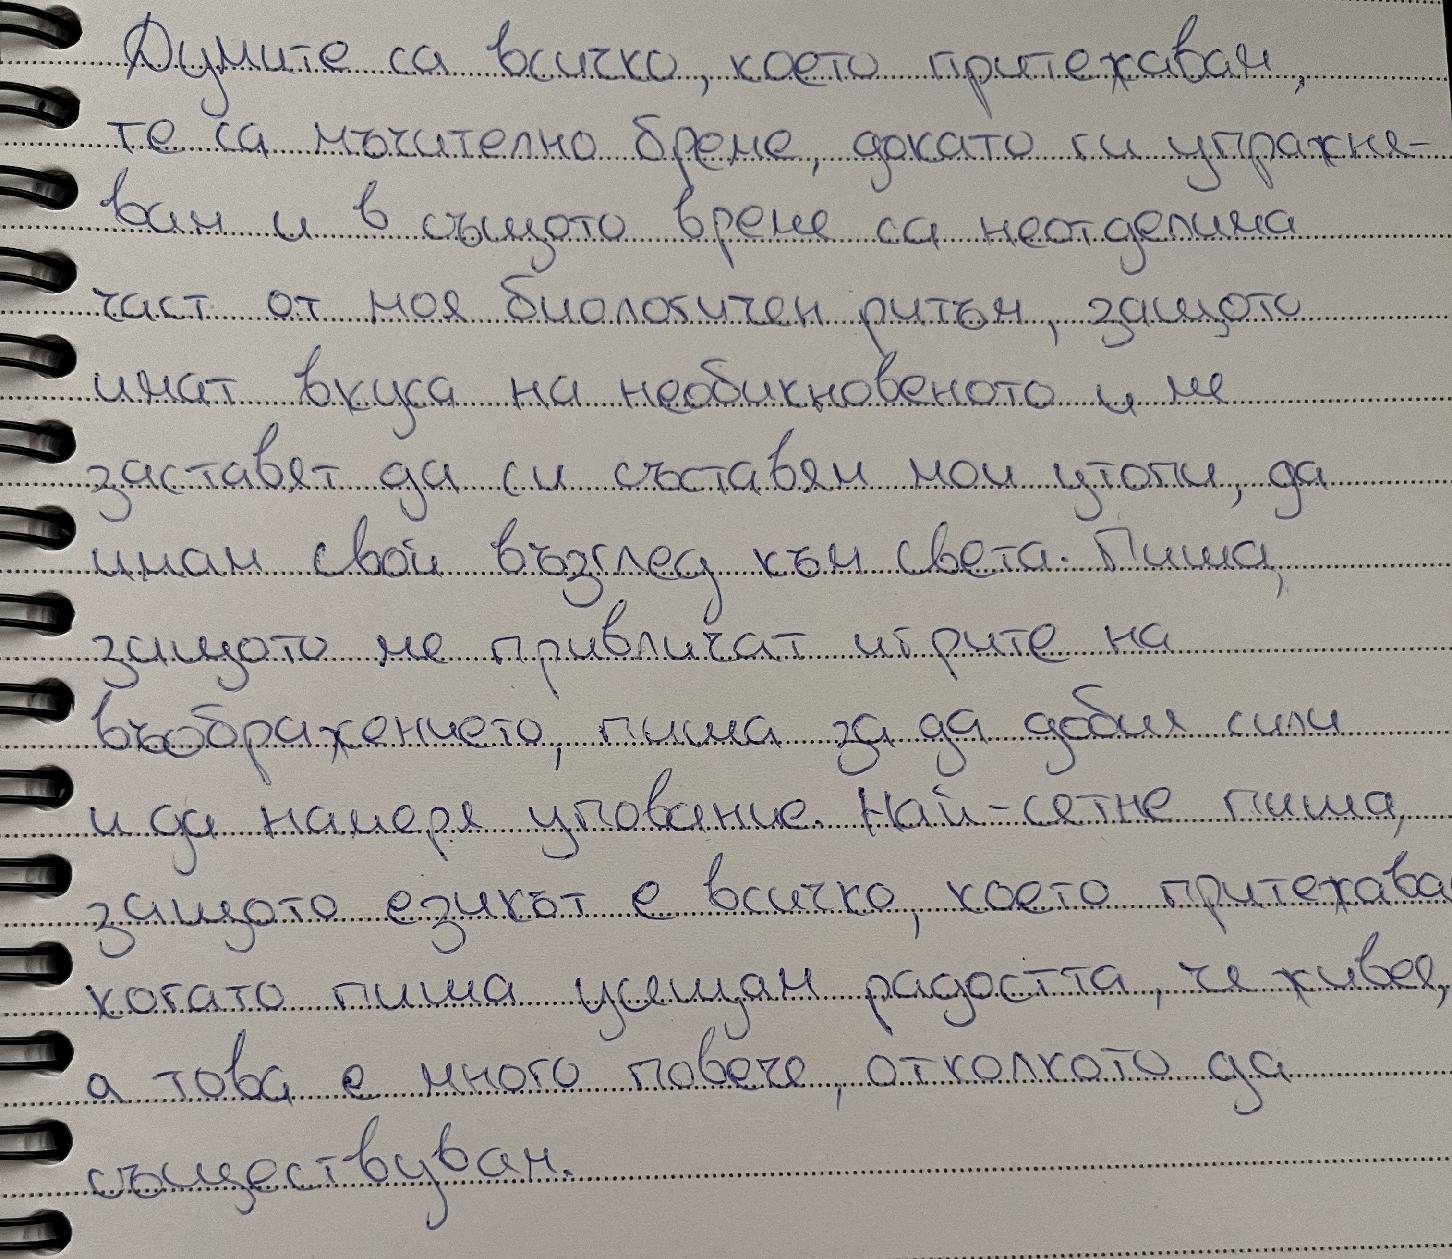 Думите са всичко, което притежавам,
те са мъчително бреме, докато ги упражня-
вам и в същото време са неотделима
част от моя биологичен ритъм, защото
имат вкуса на необикновеното и ме
заставят да си съставям мои утопи, да
имам свой възглед към света. Пиша,
защото ме привличат игрите на
въображението, пиша за да добия сили
и да намеря упование. Най-сетне пиша,
защото езикът е всичко, което притежава
когато пиша усещам радостта, че живея,
а това е много повече, отколкото да
съществувам.